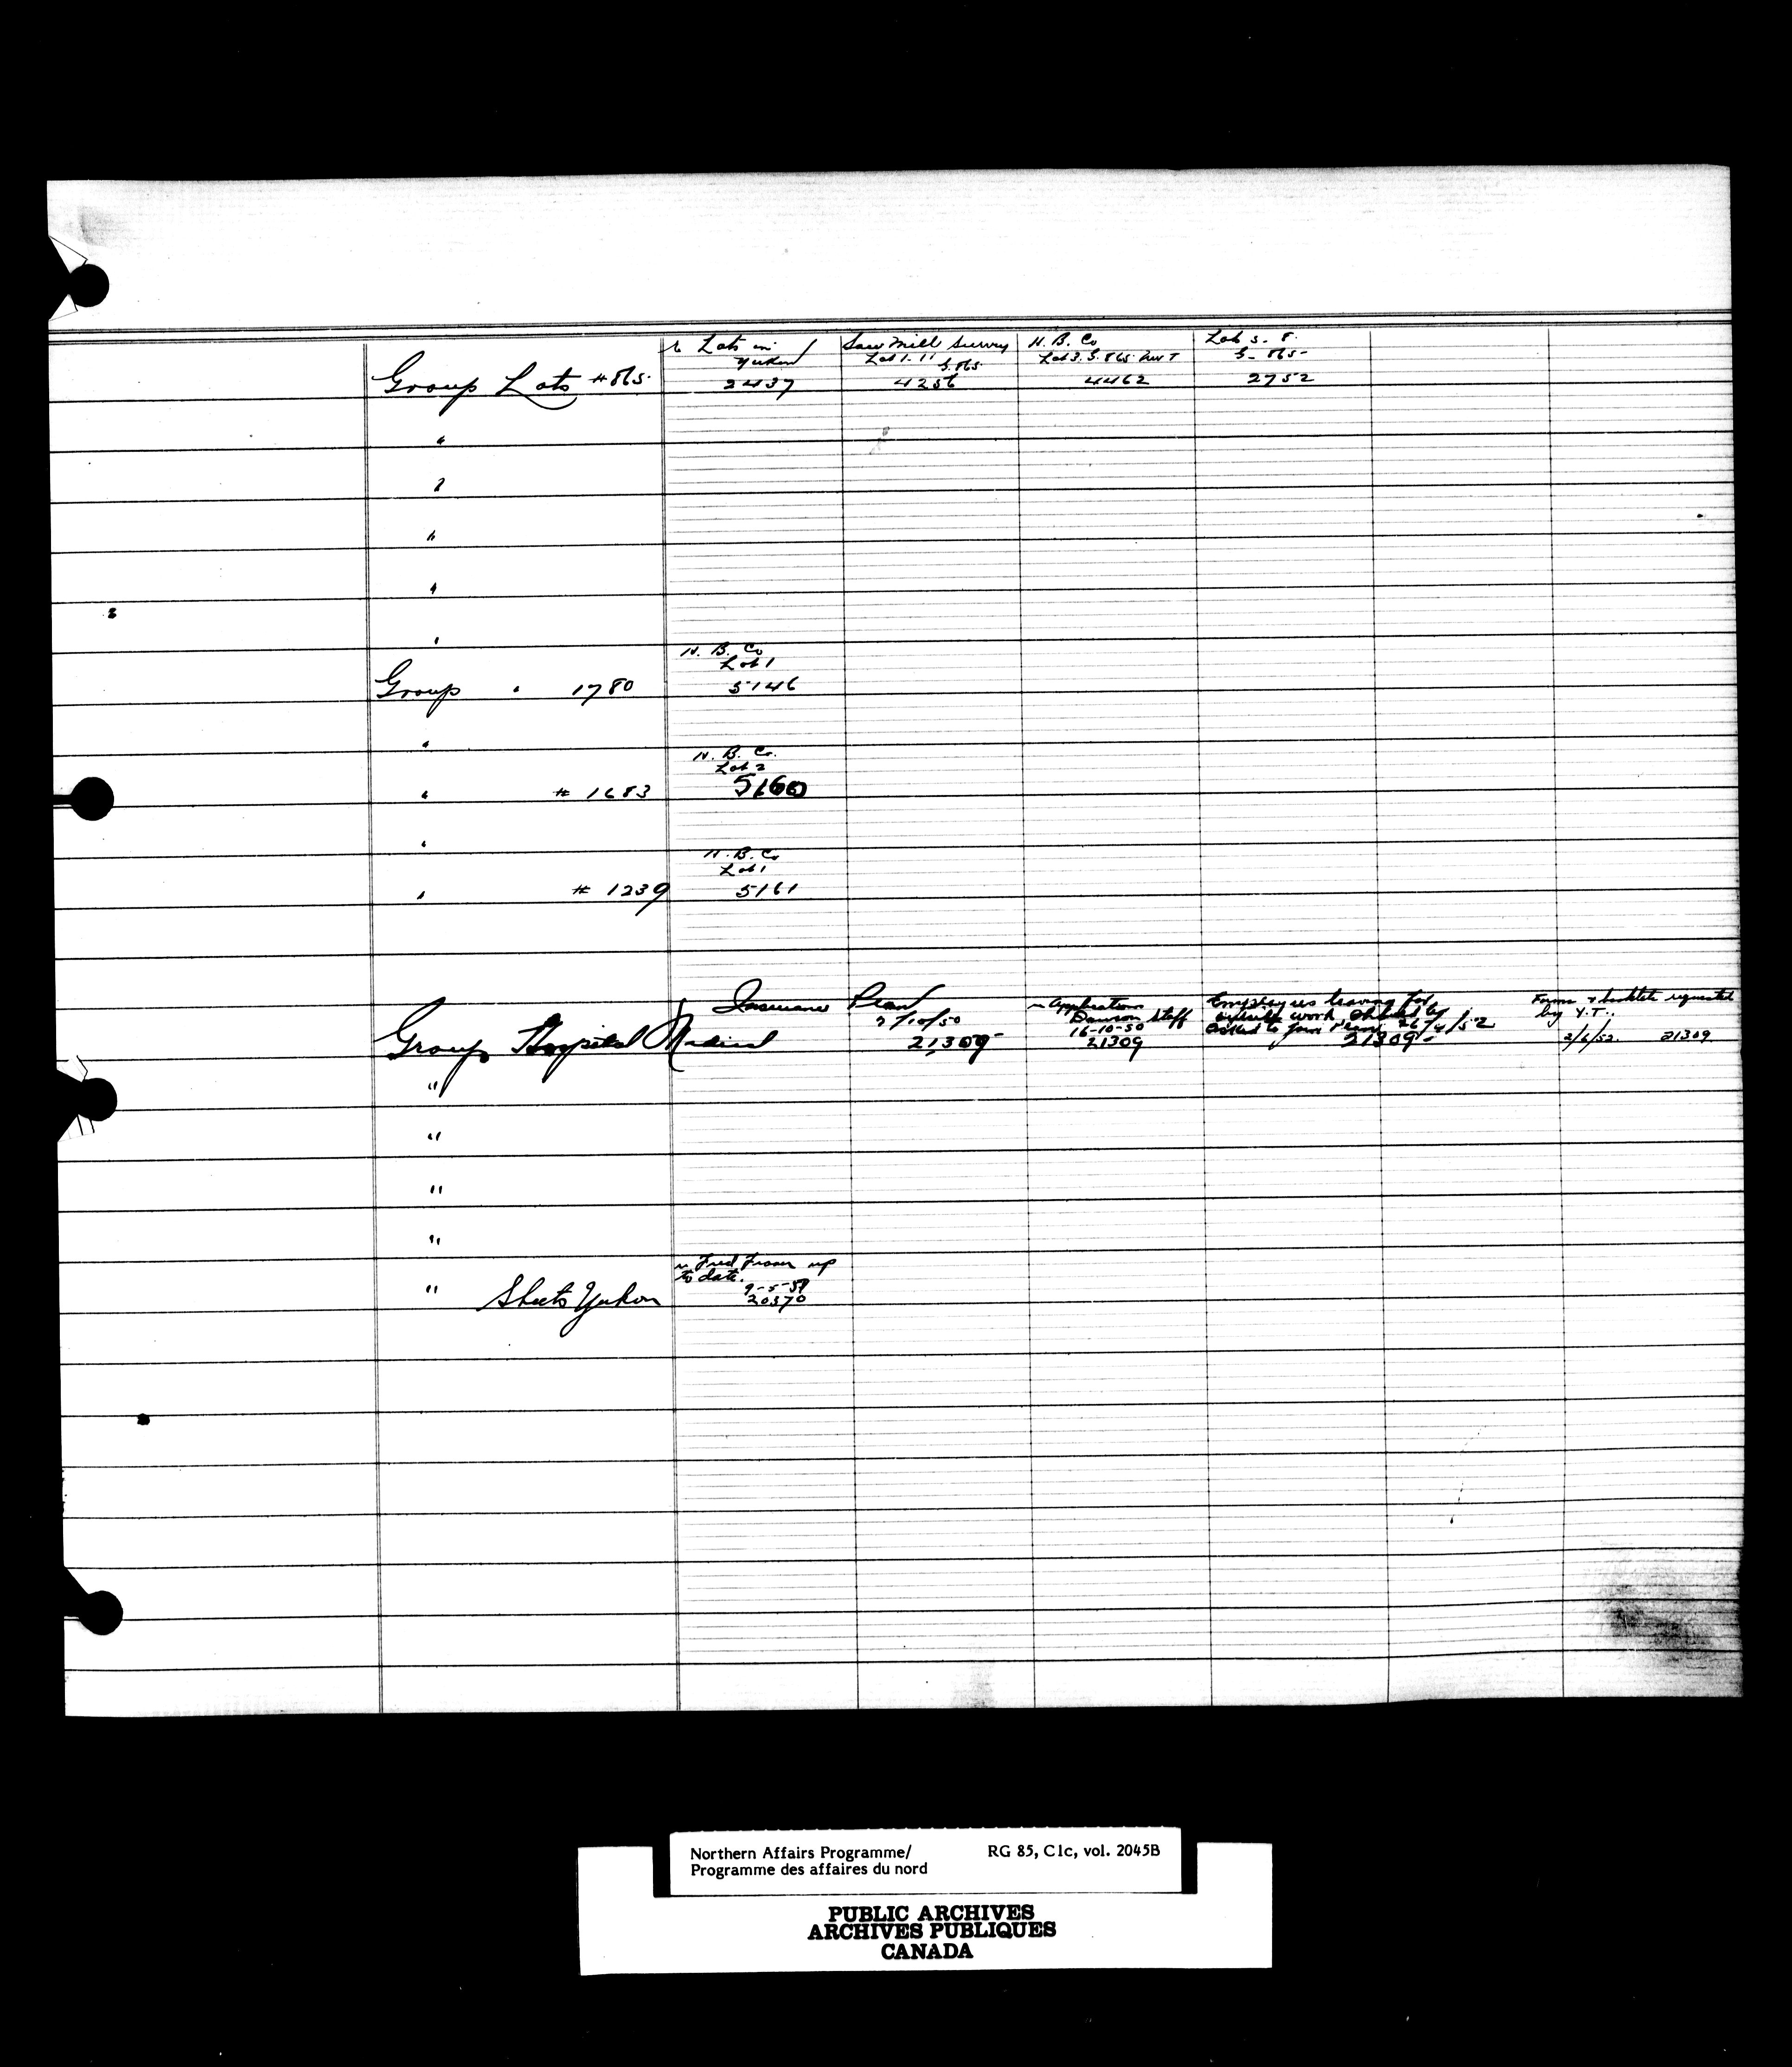 Group Lots # 865.
Lots in Yukon
2437
Saw Mill Survey
Lot 1. 11
G. 865.
4256
H. B. Co
Lot 3. G. 865. NWT
4462
Lot 5. 8.
G. 865-
2752
"
"
"
"
"
Group " 1780
H. B. Co
Lot 1
5146
"
" # 1683
H. B. Co.
Lot 2
5160
"
" # 1239
H. B. Co
Lot 1
5161
Group Hospital Medical Insurance Plan
2/10/50
21309
Application
Dawson Staff
16-10-50
21309
Employees leaving for
work should be
asked to join Plan 26/4/52
21309-
Forms & booklets requested
by Y.T.
2/6/52. 21309
"
"
"
"
" Sheets Yukon
Fred Fraser up
to date.
20370
Northern Affairs Programme/
Programme des affaires du nord
RG 85, C1c, vol. 2045B
PUBLIC ARCHIVES
ARCHIVES PUBLIQUES
CANADA